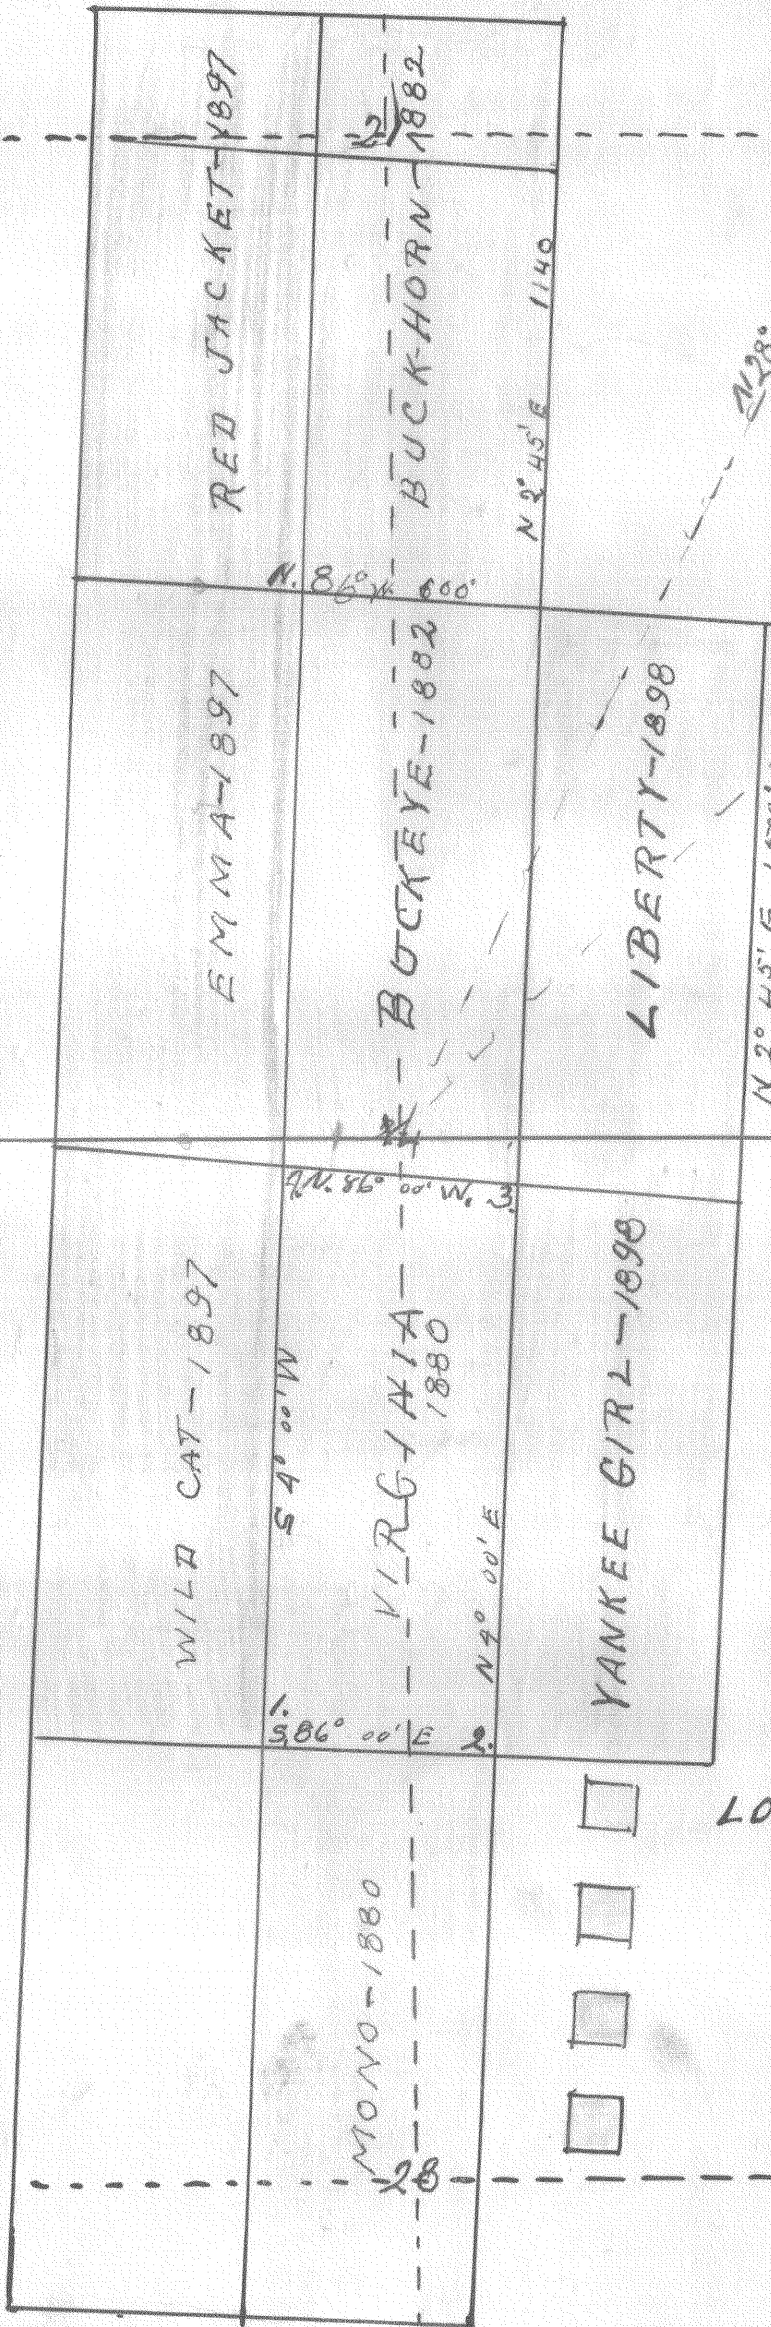 RED JACKET-1897
BUCK-HORN-1882
2
N 2° 45' E 1140
N 28°
N. 86° W. 600'
EMMA-1897
BUCKEYE-1882
LIBERTY-1898
N 2° 45' E
N. 86° 00' W. 3.
WILD CAT-1897
S 4° 00' W
VIRGINIA-
1880
N 4° 00' E
YANKEE GIRL-1898
1.
S. 86° 00' E 2.
LO
MONO-1880
28